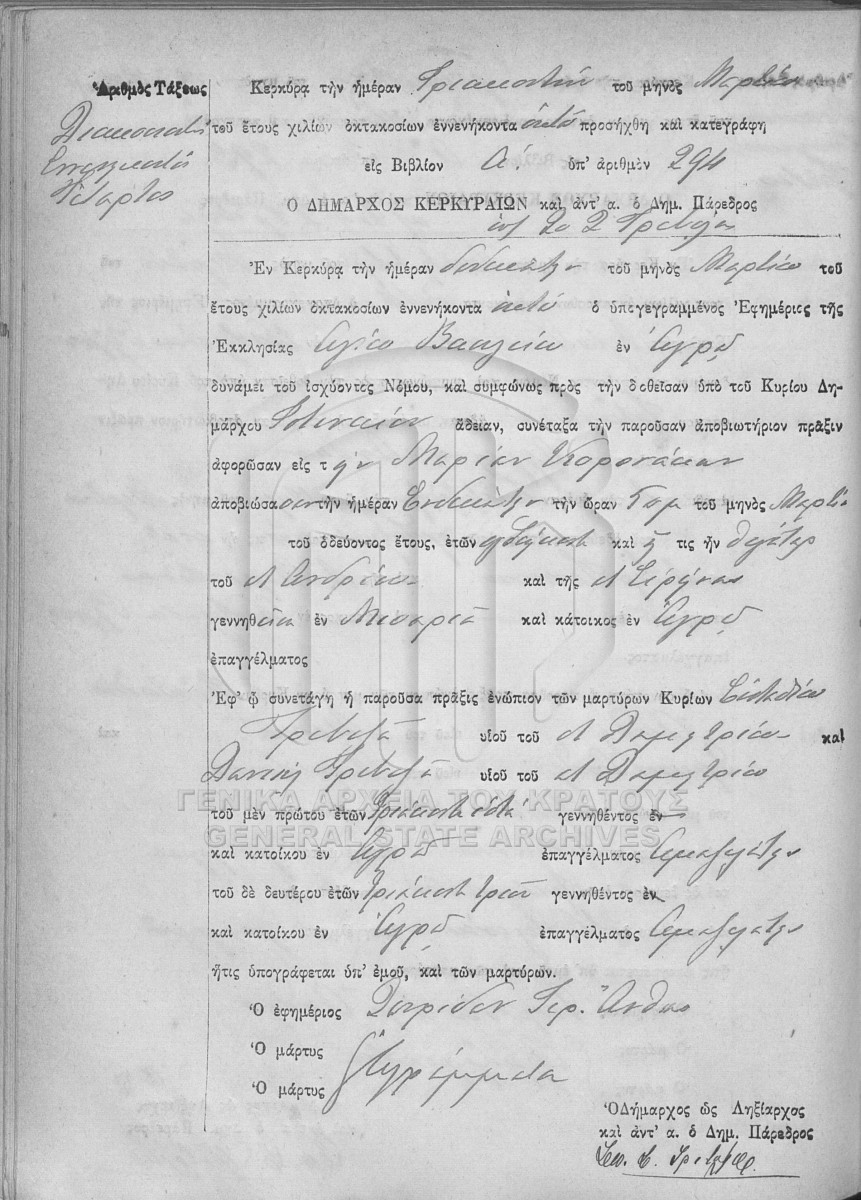 Ἀριθμὸς Τάξεως
Διακοσιοστὸς
Ἐννενηκοστὸς
Τέταρτος
Κερκύρᾳ τὴν ἡμέραν Τριακοστὴν τοῦ μηνὸς Μαρτίου
τοῦ ἔτους χιλίων ὀκτακοσίων ἐννενήκοντα ὀκτὼ προσήχθη καὶ κατεγράφη
εἰς Βιβλίον Α΄. ὑπ' ἀριθμὸν 294
Ο ΔΗΜΑΡΧΟΣ ΚΕΡΚΥΡΑΙΩΝ καὶ ἀντ' α. ὁ Δημ. Πάρεδρος
Ἐν Κερκύρᾳ τὴν ἡμέραν δωδεκάτην τοῦ μηνὸς Μαρτίου τοῦ
ἔτους χιλίων ὀκτακοσίων ἐννενήκοντα ὀκτὼ ὁ ὑπογεγραμμένος Ἐφημέριος τῆς
Ἐκκλησίας Ἁγίου Βασιλείου ἐν Ἀγρῷ
δυνάμει τοῦ ἰσχύοντος Νόμου, καὶ συμφώνως πρὸς τὴν δοθεῖσαν ὑπὸ τοῦ Κυρίου Δη-
μάρχου ἄδειαν, συνέταξα τὴν παροῦσαν ἀποβιωτήριον πρᾶξιν
ἀφορῶσαν εἰς τὴν Μαρίαν Κορονάκην
ἀποβιώσασαν τὴν ἡμέραν Ἑνδεκάτην τὴν ὥραν 5 πμ τοῦ μηνὸς Μαρτίου
τοῦ ὁδεύοντος ἔτους, ἐτῶν ὀγδοήκοντα καὶ ἥ τις ἦν θυγάτηρ
τοῦ Ἀνδρέου καὶ τῆς Εἰρήνης
γεννηθεῖσα ἐν καὶ κάτοικος ἐν Ἀγρῷ
ἐπαγγέλματος
Ἐφ' ᾧ συνετάγη ἡ παροῦσα πρᾶξις ἐνώπιον τῶν μαρτύρων Κυρίων
υἱοῦ τοῦ Δημητρίου καὶ
υἱοῦ τοῦ Δημητρίου
ΓΕΝΙΚΑ ΑΡΧΕΙΑ ΤΟΥ ΚΡΑΤΟΥΣ
τοῦ μὲν πρώτου ἐτῶν Τριάκοντα ἑπτὰ γεννηθέντος ἐν
GENERAL STATE ARCHIVES
καὶ κατοίκου ἐν Ἀγρῷ ἐπαγγέλματος
τοῦ δὲ δευτέρου ἐτῶν Τριάκοντα τριῶν γεννηθέντος ἐν
καὶ κατοίκου ἐν Ἀγρῷ ἐπαγγέλματος
ἥτις ὑπογράφεται ὑπ' ἐμοῦ, καὶ τῶν μαρτύρων.
Ὁ ἐφημέριος Σπυρίδων Ἱερ. Ἄνθης
Ὁ μάρτυς
Ἀγράμματοι
Ὁ μάρτυς
Ὁ Δήμαρχος ὡς Ληξίαρχος
καὶ ἀντ' α. ὁ Δημ. Πάρεδρος